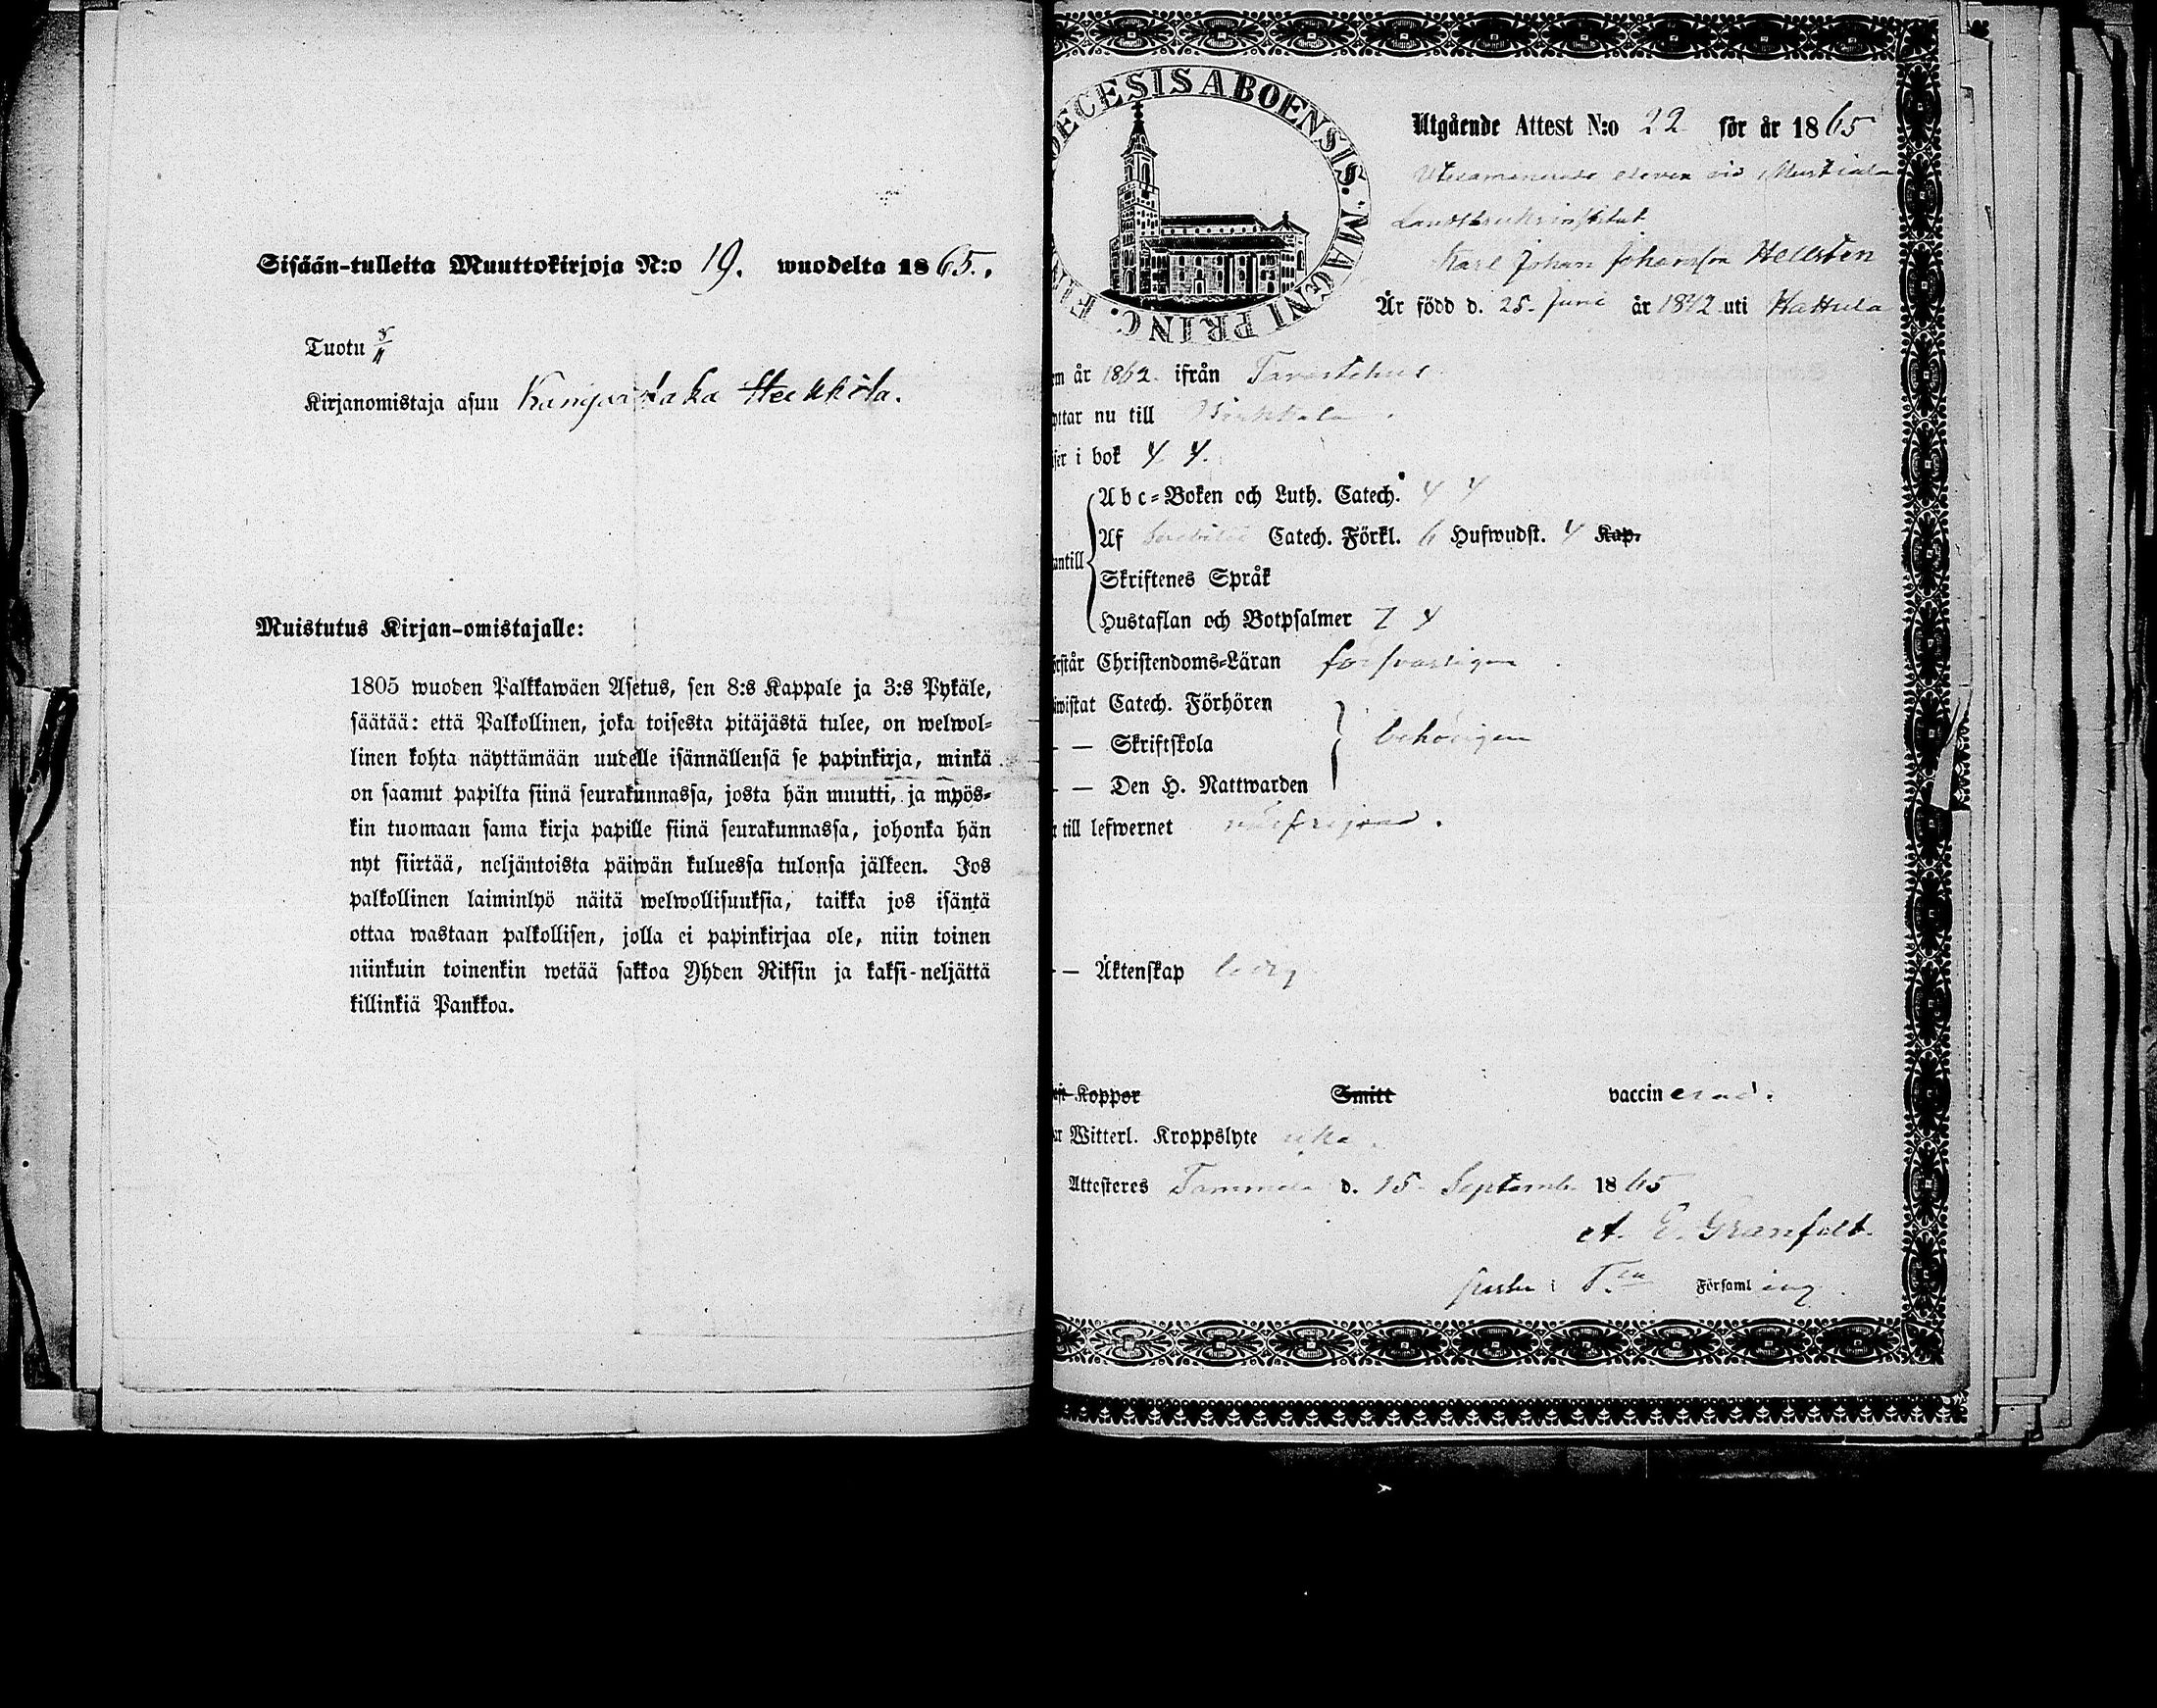 Sisään-tulleita Muuttokirjoja N:o 19. wuodelta 1865.
Tuotu 5/11
Kirjanomistaja asuu
Muistutus Kirjan-omistajalle:
1805 wuoden Palkkawäen Asetus, sen 8:s Kappale ja 3:s Pykäle,
säätää: että Palkollinen, joka toisesta pitäjästä tulee, on welwol-
linen kohta näyttämään uudelle isännällensä se papinkirja, minkä
on saanut papilta siinä seurakunnassa, josta hän muutti, ja myös-
kin tuomaan sama kirja papille siinä seurakunnassa, johonka hän
nyt siirtää, neljäntoista päiwän kuluessa tulonsa jälkeen. Jos
palkollinen laiminlyö näitä welwollisuuksia, taikka jos isäntä
ottaa wastaan palkollisen, jolla ei papinkirjaa ole, niin toinen
niinkuin toinenkin wetää sakkoa Yhden Riksin ja kaksi-neljättä
killinkiä Pankkoa.
ECESIS ABOENSIS. MAGNI PRINC. FIN
Utgående Attest N:o 22 för år 1865
Utexaminerade eleven vid Mustiala
Landtbruksinstitut
Karl Johan Johansson Hellsten
Är född d. 25. Juni år 1842 uti Hattula
em år 1862 ifrån Tavastehus
yttar nu till
äser i bok
Abc-Boken och Luth. Catech.
Af Svebilii Catech. Förkl. 6 Hufwudst. Kap.
antill
Skriftenes Språk
Hustaflan och Botpsalmer
örstår Christendoms-Läran försvarligen
iwistat Catech. Förhören
— — Skriftskola behörigen
— — Den H. Nattwarden
r till lefwernet välfrejdad.
— — Äktenskap ledig
Koppor Smitt vaccinerad.
ar Witterl. Kroppslyte icke.
Attesteres Tammela d. 15 Septemb. 1865
A. E. Granfelt.
i T.la Församling.